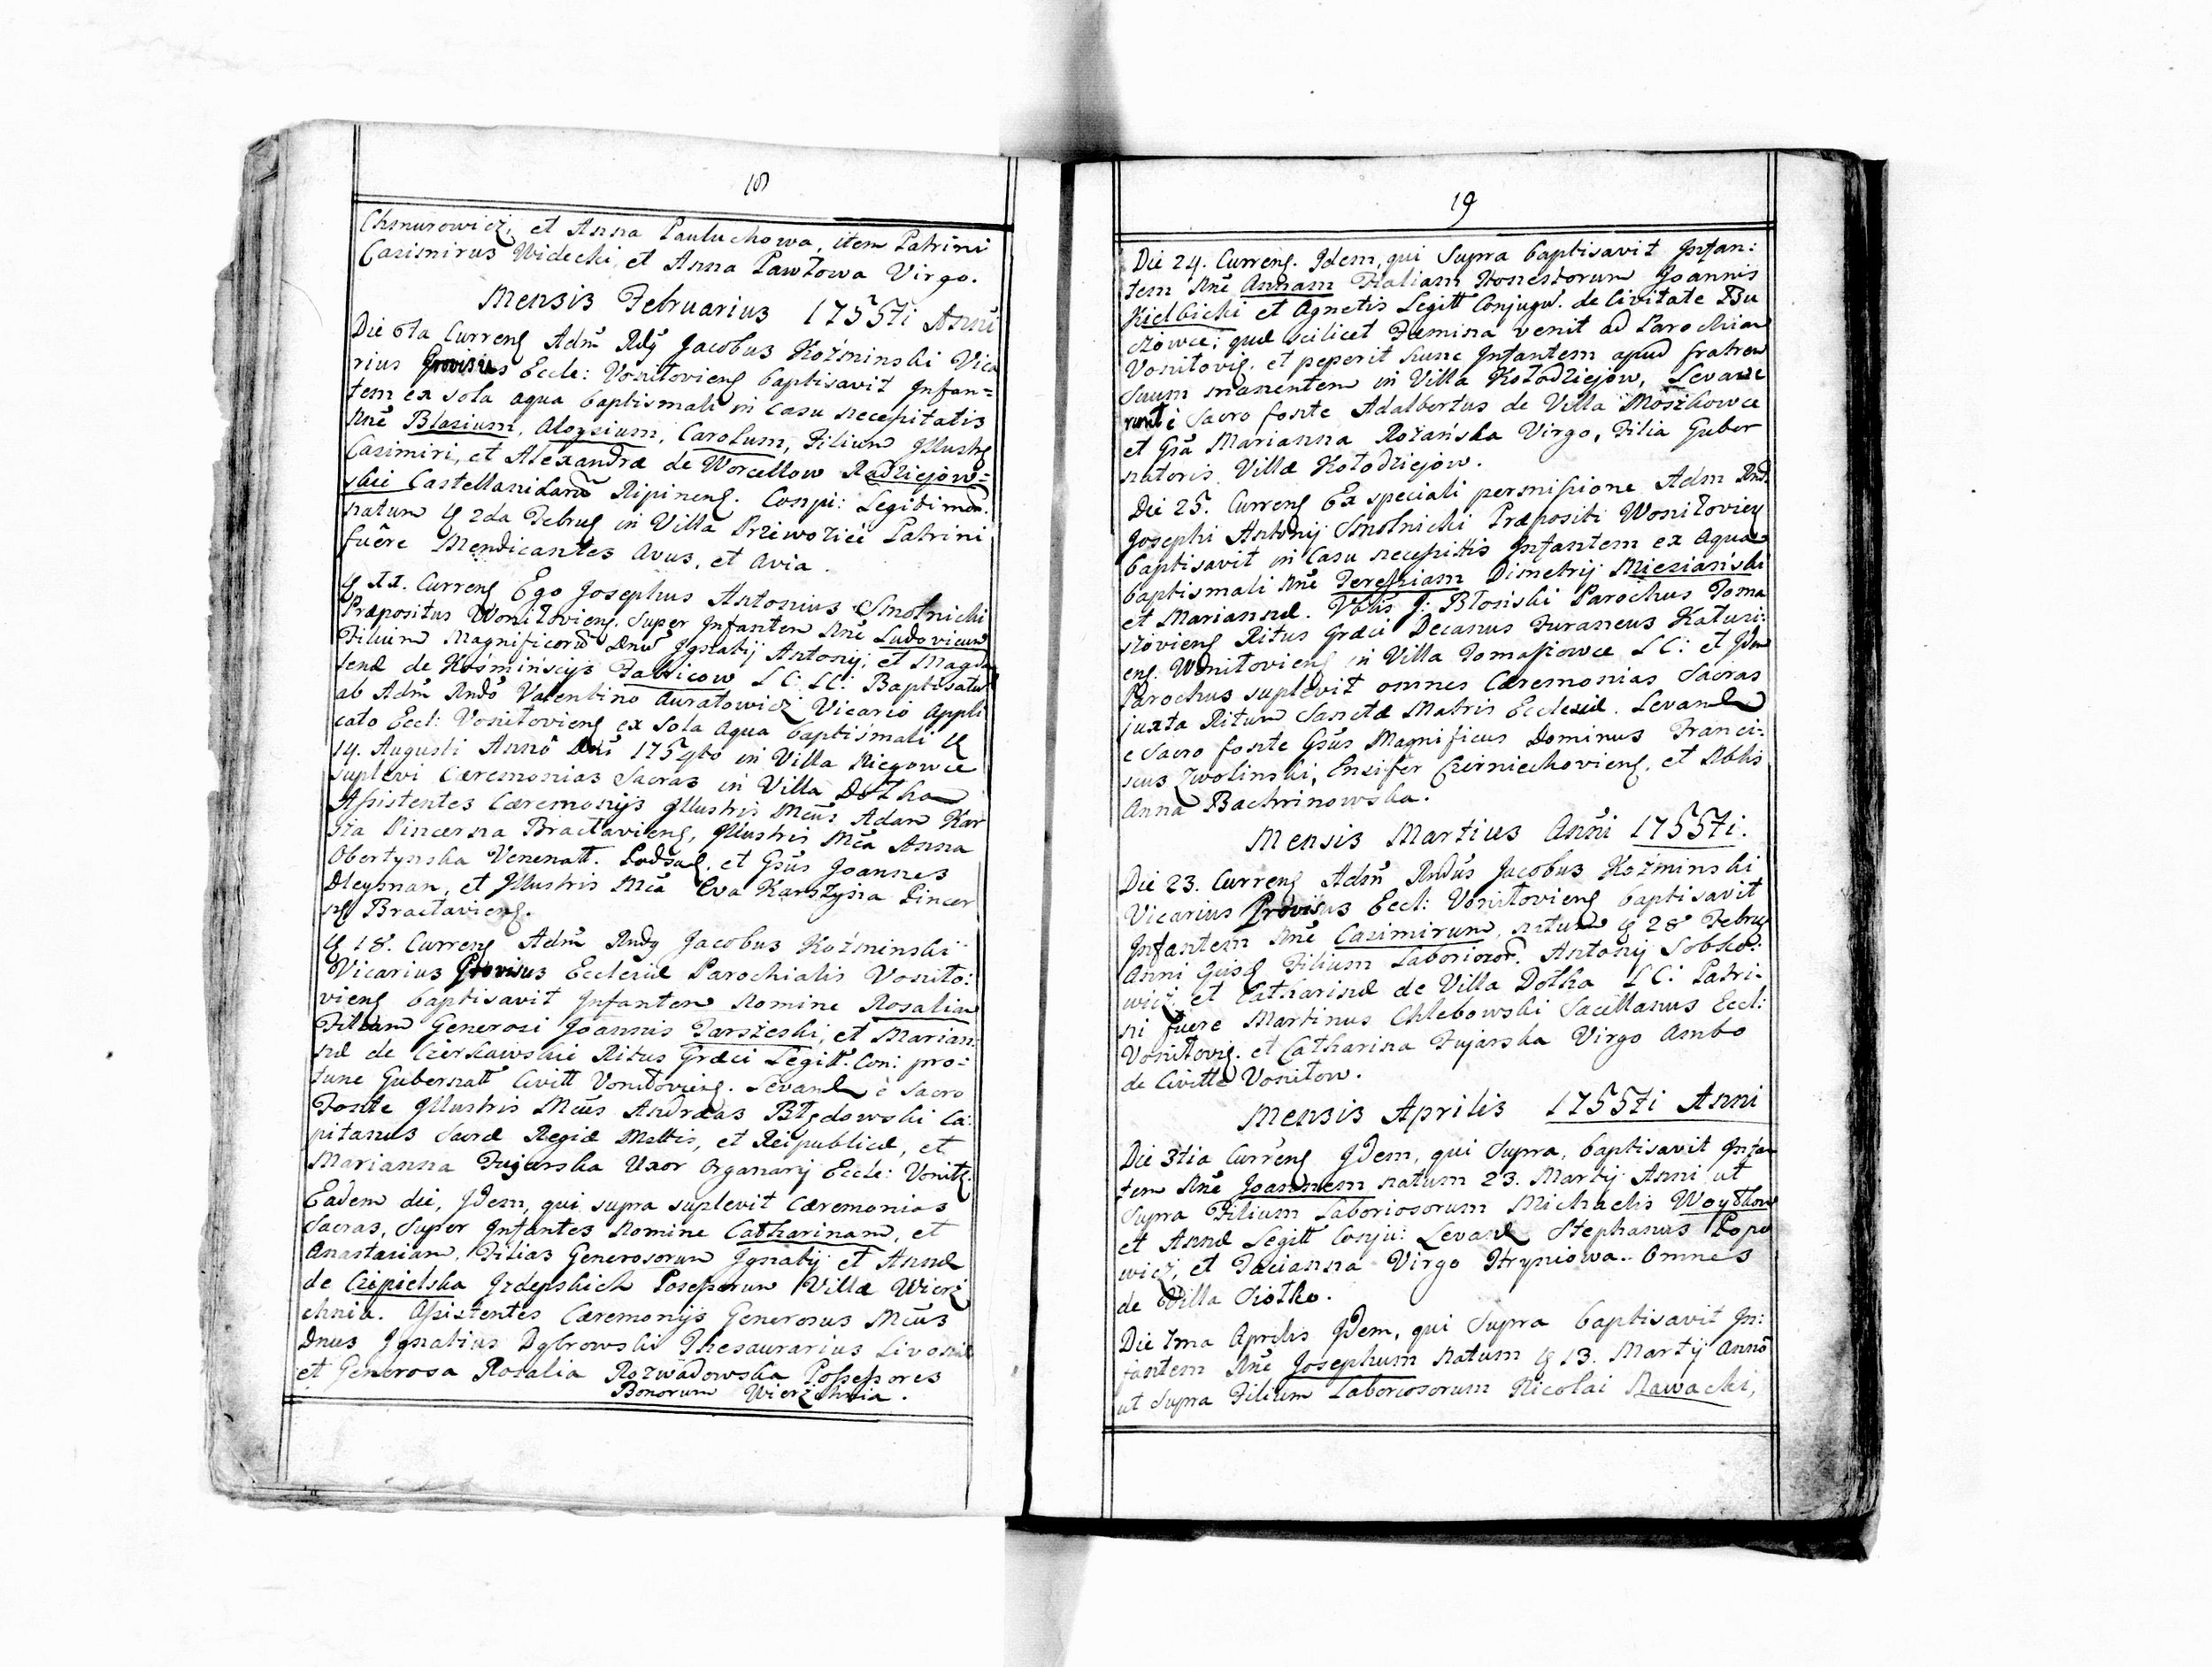 18
Chmurowicz, et Anna Pauluchowa, item Patrini
Casimirus Widecki, et Anna Pawłowa Virgo.
Mensis Februarius 1755ti Anni
Die 6ta Curreng Adm̃ Rdg Jacobus Koźminski Vica
rius Provisus Eccle: Vonitovieng baptisavit Infan=
tem ex sola aqua baptismali in casu necessitatis
Nñe Blasium, Aloysium, Carolum, Filium Illustrg
Casimiri, et Alexandræ de Worcellow Radziejow=
skie Castellani Ripineng. Conpi: Legitimor.
natum g 2da Februg in Villa Przewoziec Patrini
fuêre Mendicantes Avus, et Avia.
g II. Curreng Ego Josephus Antonius Smolnicki
Præpositus Woniłovieng. Super Infantem Nñe Ludovicum
Filium Magnificorũ Dnũ Ignatij Antonij, et Magda
lenæ de Kośmińscijs Jabłicow LC: LC: Baptisatum
ab Adm̃ Rndo Valentino Auratowicz Vicario Appli
cato Eccl: Voniłovieng ex Sola Aqua baptismali g
14. Augusti Anno Dni 1754to in Villa Niegowce
suplevi Cæremonias Sacras in Villa Dołha
Assistentes Cæremonijs Illustris Mcus Adam Kar
szia Pincerna Bractavieng, Illustris Mca Anna
Obertynska Venenatt. Podsal. et Gsus Joannes
Dleysman, et Illustris Mca Eva Karszysia Pincer
ng Bractavieng.
g 18. Curreng Adm̃ Rndg Jacobus Koźminski
Vicarius Provisus Ecclesiæ Parochialis Vonito:
vieng baptisavit Infantem Nomine Rosaliam
Filiam Generosi Joannis Jarszeski, et Marian:
næ de Czerkawskie Ritus Græci Legitt. Con: pro:
tunc Gubernatt Civitt Voniłovieng. Levand è Sacro
Fonte Illustris Mcus Andræas Błędowski Ca:
pitanus Sacræ Regiæ Mattis, et Reipublicæ, et
Marianna Fujarska Uxor Organarij Eccle: Vonitł.
Eadem die, Idem, qui supra suplevit Cæremonias
Sacras, Super Infantes Nomine Catharinam, et
Anastasiam, Filias Generosorum Ignatij et Annæ
de Czipielska Jzdepskich Possessorum Villæ Wierz
chnia. Assistentes Cæremonijs Generosus Mcus
Dnus Ignatius Dąbrowski Thesaurarius Livoniæ
et Generosa Rosalia Rozwadowska Possessores
Bonorum Wierzchnia.
19
Die 24. Curreng. Idem, qui Supra baptisavit Infan:
tem Nñe Annam Filiam Honestorum Joannis
Kiełbicki et Agnetis Legitt Conjugu. de Civitate Bu
czowce; quæ scilicet Fæmina venit ad Parochiam
Vonitovig. et peperit hunc Infantem apud fratrem
Suum manentem in Villa Kołodziejow, Levave
runt è Sacro fonte Adalbertus de Villa Moszkowce
et Gsa Marianna Rożańska Virgo, Filia Guber
natoris Villæ Kołodziejow.
Die 25. Curreng Ex speciali permissione Adm Rnd.
Josephi Antonij Smolnicki Præpositi Woniłovieng
baptisavit in Casu necessittis Infantem ex Aqua
baptismali Nñe Teressiam Dimetrij Mieziański
et Mariannæ. Vblis J: Błoński Parochus Toma
szovieng Ritus Græci Decanus Juraneus Katusi:
eng. Woniłovieng in Villa Tomaszowce LC: et Idem
Parochus suplevit omnes Cæremonias Sacras
juxta Ritum Sanctæ Matris Ecclesiæ. Levand
e Sacro fonte Gsus Magnificus Dominus Franci:
scus Zwolinski, Ensifer Czerniechovieng, et Nblis
Anna Bachrinowska.
Mensis Martius Anni 1755ti.
Die 23. Curreng Adm̃ Rndus Jacobus Koźminski
Vicarius Provisus Eccl: Vonitovieng baptisavit
Infantem Nñe Casimirum, natum g 28 Februg
Anni Ejusd Filium Laborioror. Antonij Sobko:
wicz et Catharinæ de Villa Dołha LC: Patri:
ni fuere Martinus Chlebowski Sacellanus Eccl:
Vonitovig. et Catharina Fujarska Virgo Ambo
de Civitte Voniłow.
Mensis Aprilis 1755ti Anni
Die 3tia Curreng Idem, qui Supra, baptisavit Infan
tem Nñe Joannem natum 23. Martij Anni ut
Supra Filium Laboriosorum Michaelis Woytkow
et Annæ Legitt Conju: Levand Stephanus Popo
wicz, et Tacianna Virgo Hryniowa.. Omnes
de Villa Siołko.
Die Ima Aprilis Idem, qui Supra baptisavit In:
fantem Nñe Josephum Natum g 13. Martij Anno
ut Supra Filium Laboriosorum Nicolai Nawacki,